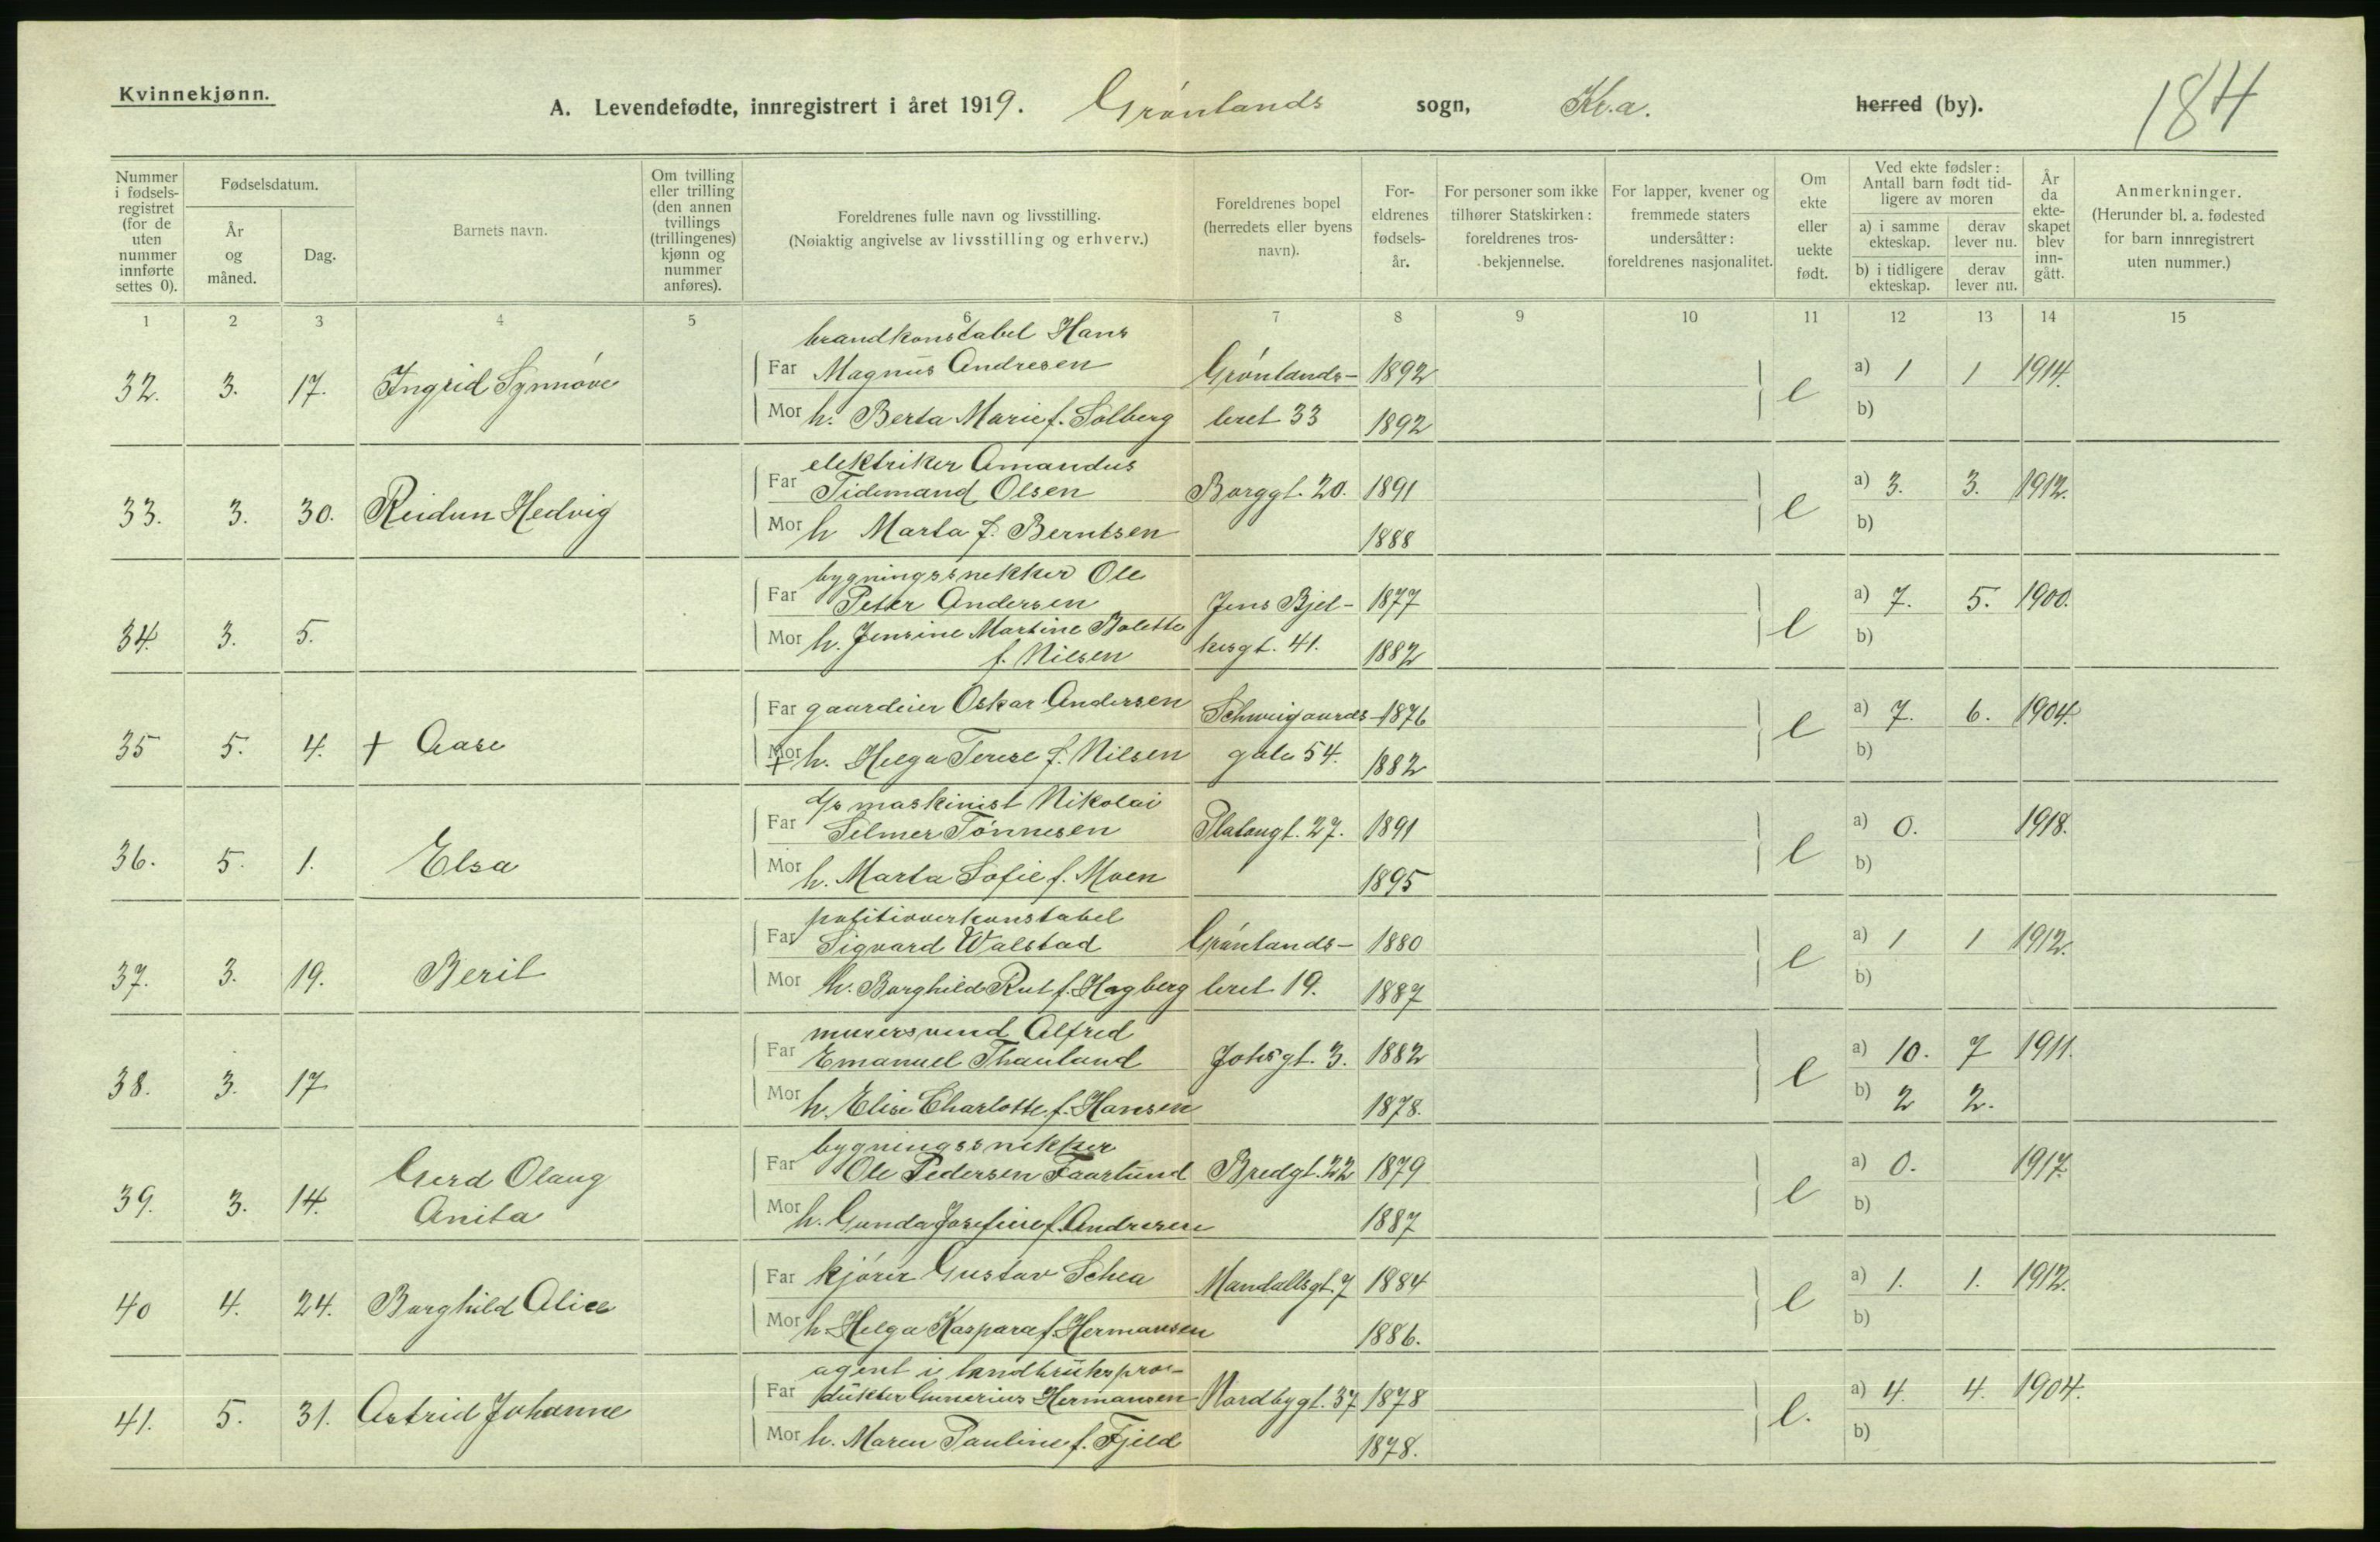 Kvinnekjønn.
A. Levendefødte, innregistrert i året 1919. Grønlands sogn, Kr.a. herred (by). 184
Nummer i fødselsregistret (for de uten nummer innførte settes 0).
Fødselsdatum.
År og måned.
Dag.
Barnets navn.
Om tvilling eller trilling (den annen tvillings (trillingenes) kjønn og nummer anføres).
Foreldrenes fulle navn og livsstilling.
(Nøiaktig angivelse av livsstilling og erhverv.)
Foreldrenes bopel (herredets eller byens navn).
Foreldrenes fødselsår.
For personer som ikke tilhører Statskirken: foreldrenes trosbekjennelse.
For lapper, kvener og fremmede staters undersåtter: foreldrenes nasjonalitet.
Om ekte eller uekte født.
Ved ekte fødsler: Antall barn født tidligere av moren
a) i samme ekteskap. derav lever nu.
b) i tidligere ekteskap. derav lever nu.
År da ekteskapet blev inngått.
Anmerkninger.
(Herunder bl. a. fødested for barn innregistrert uten nummer.)
1 2 3 4 5 6 7 8 9 10 11 12 13 14 15
brandkonstabel Hans
Far Magnus Andresen Grønlands- 1892 a) 1 1 1914.
32. 3. 17. Ingrid Synnøve e
Mor h. Berta Marie f. Solberg leret 33 1892 b)
elektriker Amandus
Far Tidemand Olsen Borggt. 20. 1891 a) 3. 3. 1912.
33. 3. 30. Reidun Hedvig e
Mor h Marta f. Berntsen 1888 b)
bygningssnekker Ole
Far Peter Andersen Jens Bjel- 1877 a) 7. 5. 1900.
34. 3. 5. e
Mor h. Jensine Martine Bolette kesgt. 41. 1882 b)
f. Nilsen
Far gaardeier Oskar Andersen Schweigaards- 1876 a) 7. 6. 1904.
35 5. 4. + Aase e
Mor + h. Helga Terese f. Nilsen gate 54. 1882 b)
d/s maskinist Nikolai
Far Selmer Tønnesen Platougt. 27. 1891 a) 0. 1918.
36. 5. 1. Elsa e
Mor h. Marta Sofie f. Moen 1895 b)
politioverkonstabel
Far Sigvard Walstad Grønlands- 1880 a) 1 1 1912.
37. 3. 19. Berit e
Mor h. Borghild Rut f. Hagberg leret 19. 1887 b)
murersvend Alfred
Far Emanuel Thauland Johsgt. 3. 1882 a) 10. 7 1911.
38. 3. 17 e
Mor h. Elise Charlotte f. Hansen 1878. b) 2 2.
bygningssnekker
Far Ole Pedersen Faarlund Bredgt. 22 1879 a) 0. 1917.
39. 3. 14. Gerd Olaug Anita e
Mor h. Gunda Josefine f. Andresen 1887 b)
Far kjører Gustav Schea Mandallsgt. 7 1884 a) 1. 1. 1912.
40 4. 24. Borghild Alice e
Mor h. Helga Kaspara f. Hermansen 1886. b)
agent i landbrukspro-
Far dukter Gunerius Hermansen Nordbygt. 37 1878 a) 4. 4. 1904.
41. 5. 31. Astrid Johanne e.
Mor h. Maren Pauline f. Fjeld 1878. b)